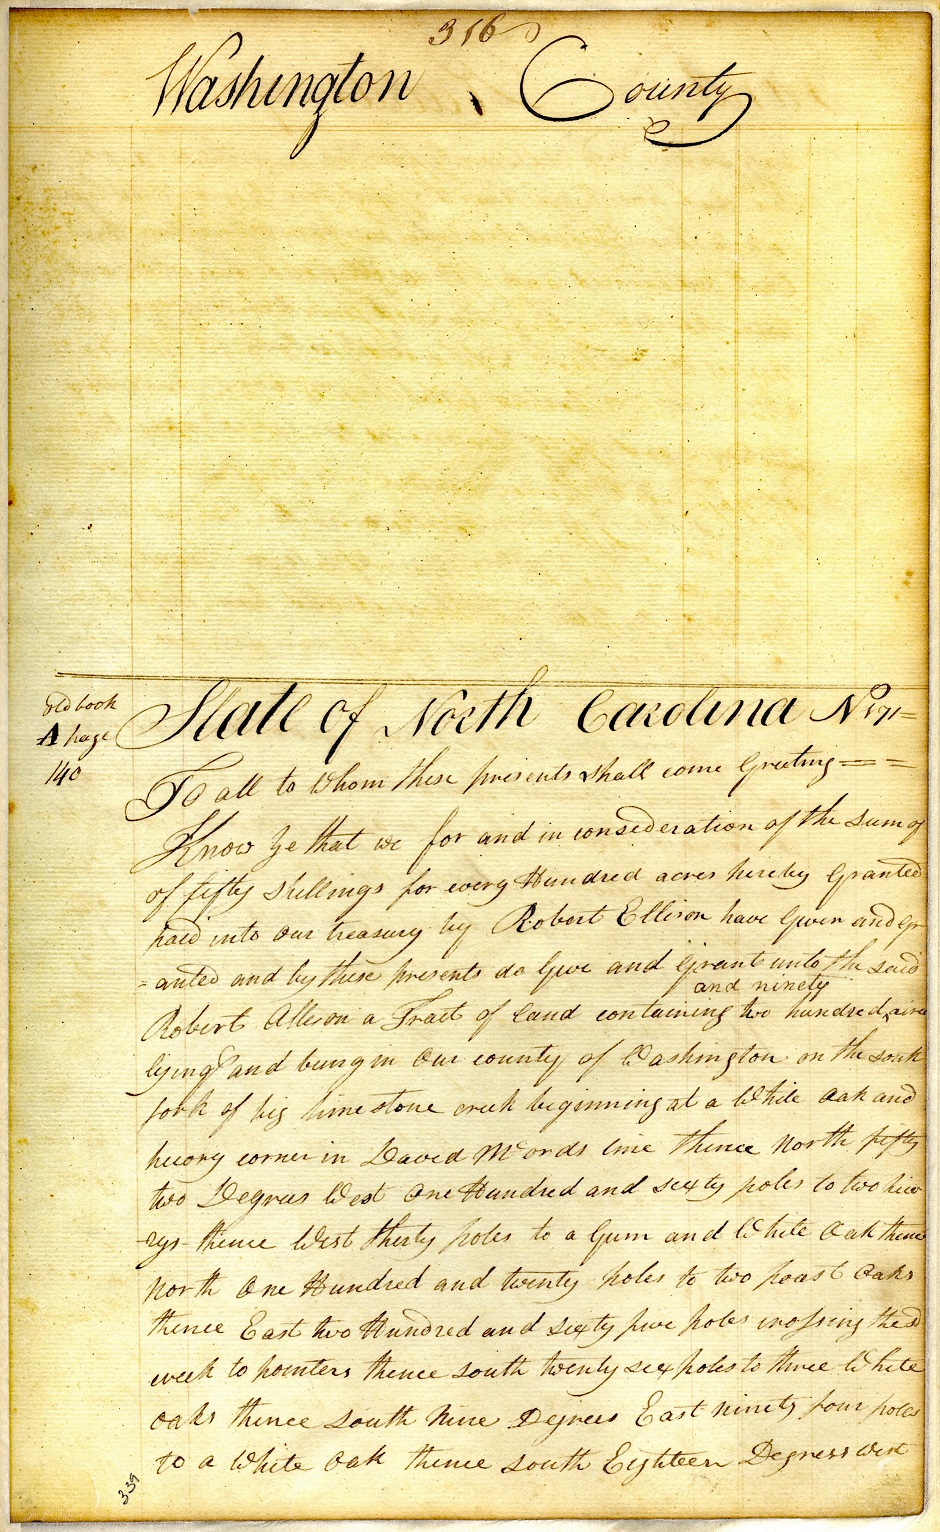 316
Washington County
old book
A page
140
State of North Carolina No 171=
To all to Whom these presents shall come Greeting = = =
Know Ye that we for and in consideration of the sum of
of fifty shillings for every Hundred acres hereby Granted
paid into our treasury by Robert Ellison have Given and gr
=anted and by these presents do Give and Grant unto the said
and ninety
Robert Allison a Tract of land containing two hundred acres
lying and being in Our county of Washington on the south
fork of big limestone creek beginning at a White Oak and
hicory corner in David McCords line thence North fifty
two Degrees West One Hundred and sixty poles to two hico
-rys- thence West thirty poles to a Gum and White Oak thence
North One Hundred and twenty poles to two poast Oaks
thence East two Hundred and sixty five poles crossing the sd
creek to pointers thence south twenty six poles to three White
oaks thence South Nine Degrees East ninety four poles
to a White Oak thence south Eighteen Degress West
339